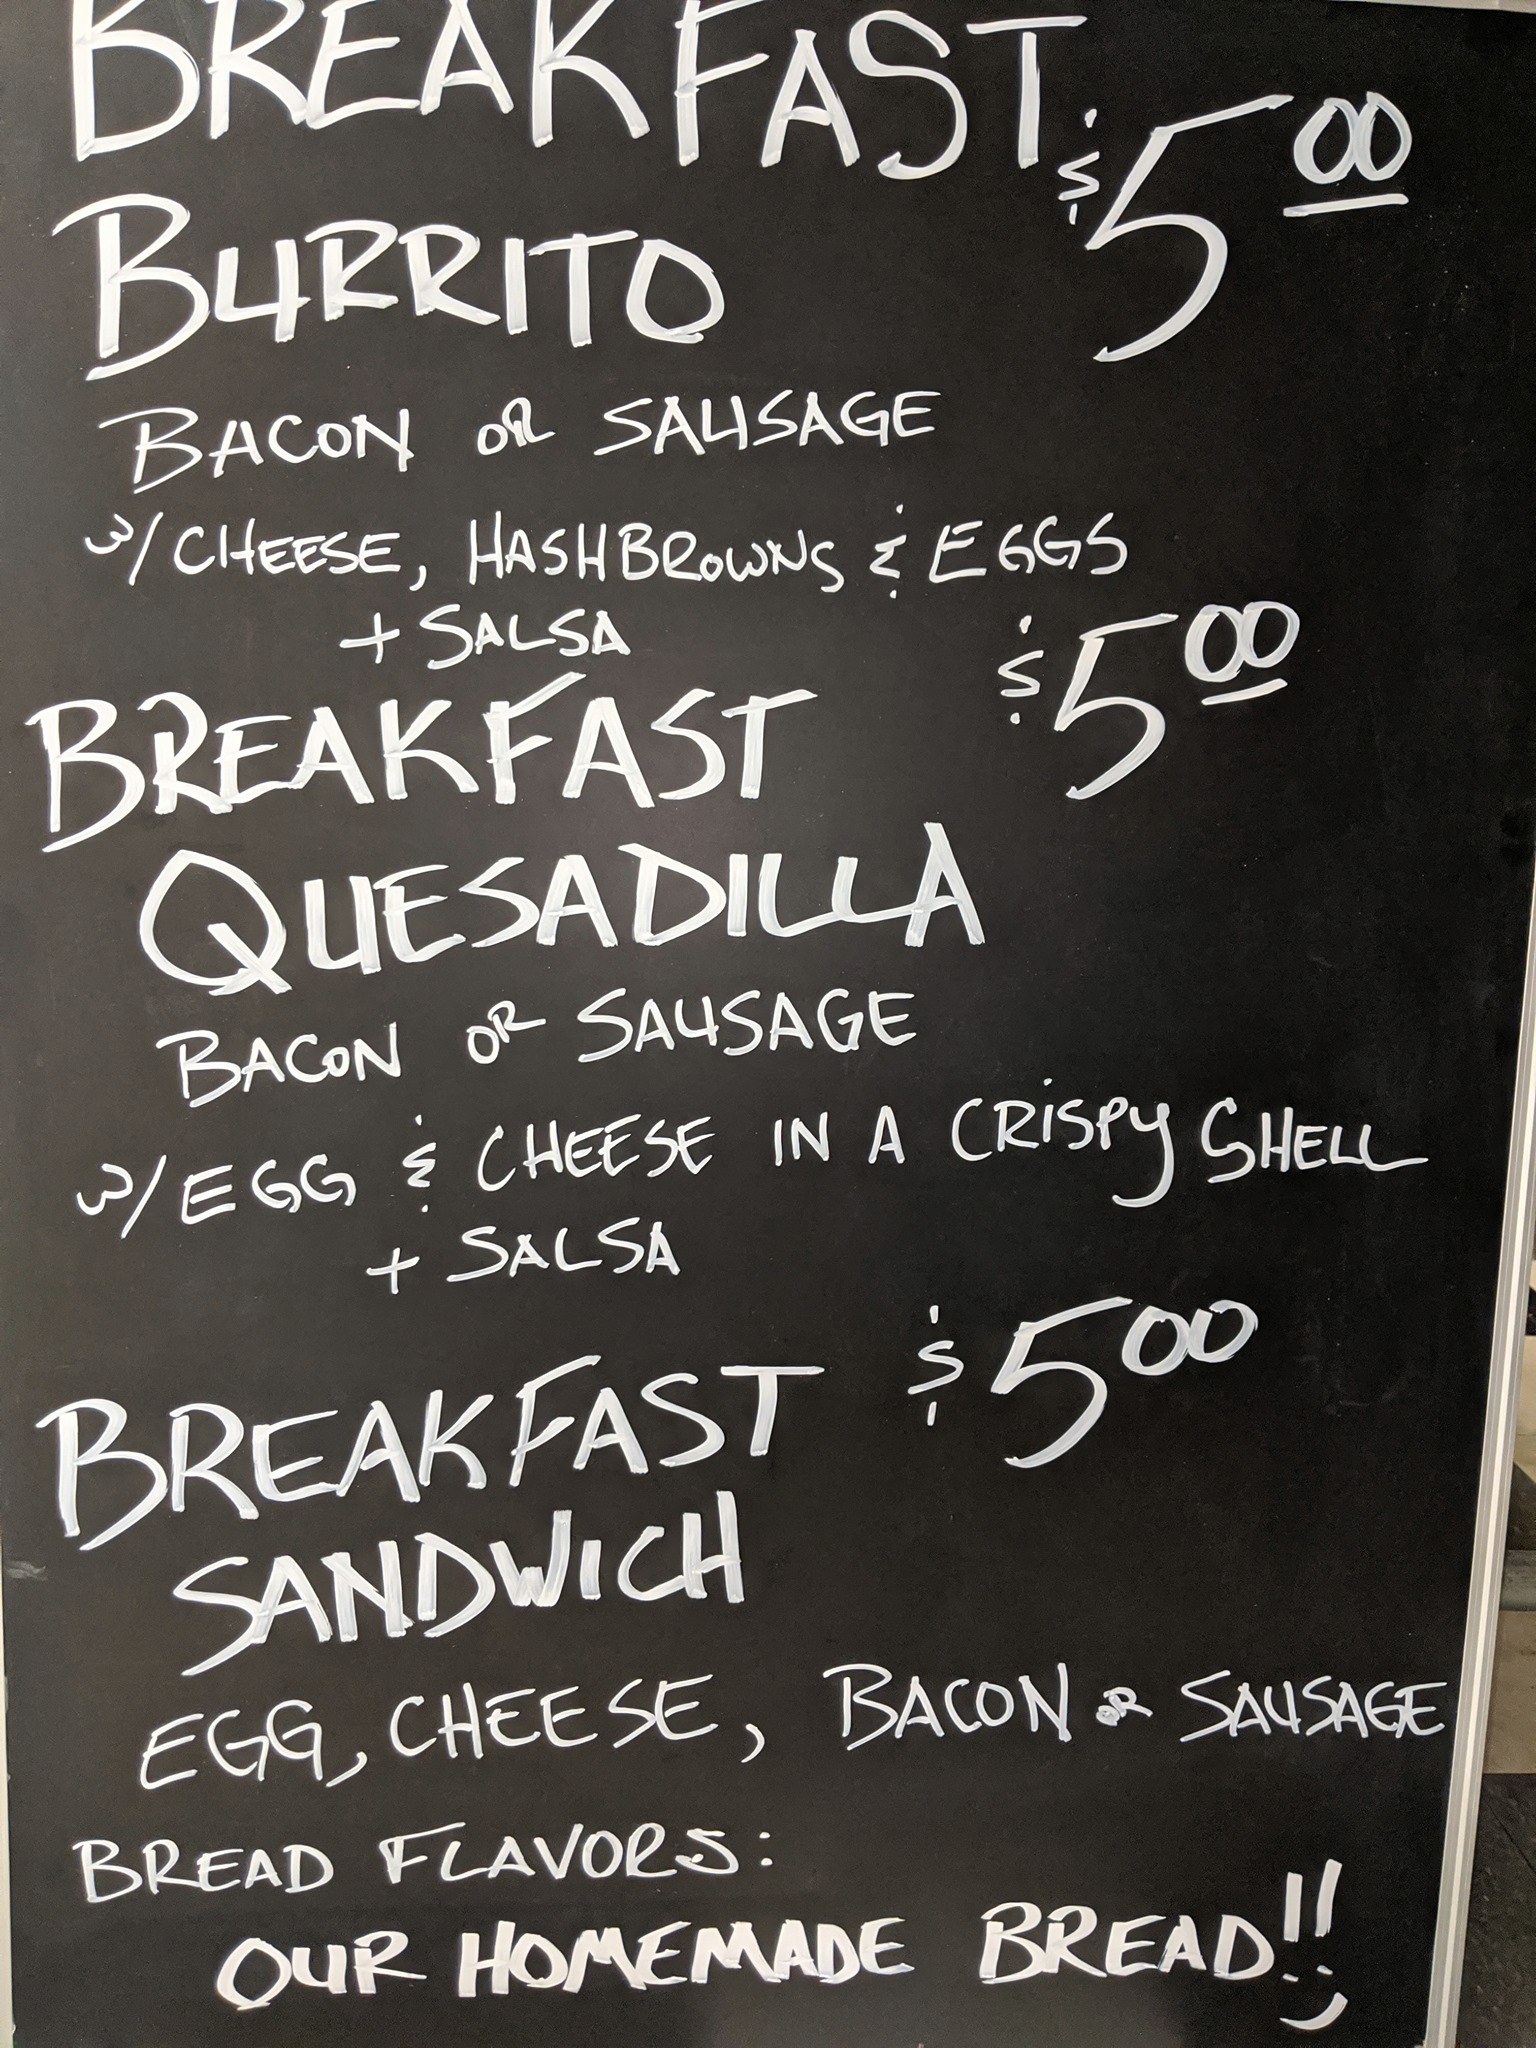 BREAKFAST $5.00
BURRITO
BACON OR SAUSAGE
W/ CHEESE, HASHBROWNS & EGGS
+ SALSA
BREAKFAST $5.00
QUESADILLA
BACON OR SAUSAGE
W/ EGG & CHEESE IN A CRISPY SHELL
+ SALSA
BREAKFAST $5.00
SANDWICH
EGG, CHEESE, BACON OR SAUSAGE
BREAD FLAVORS:
OUR HOMEMADE BREAD!! :)